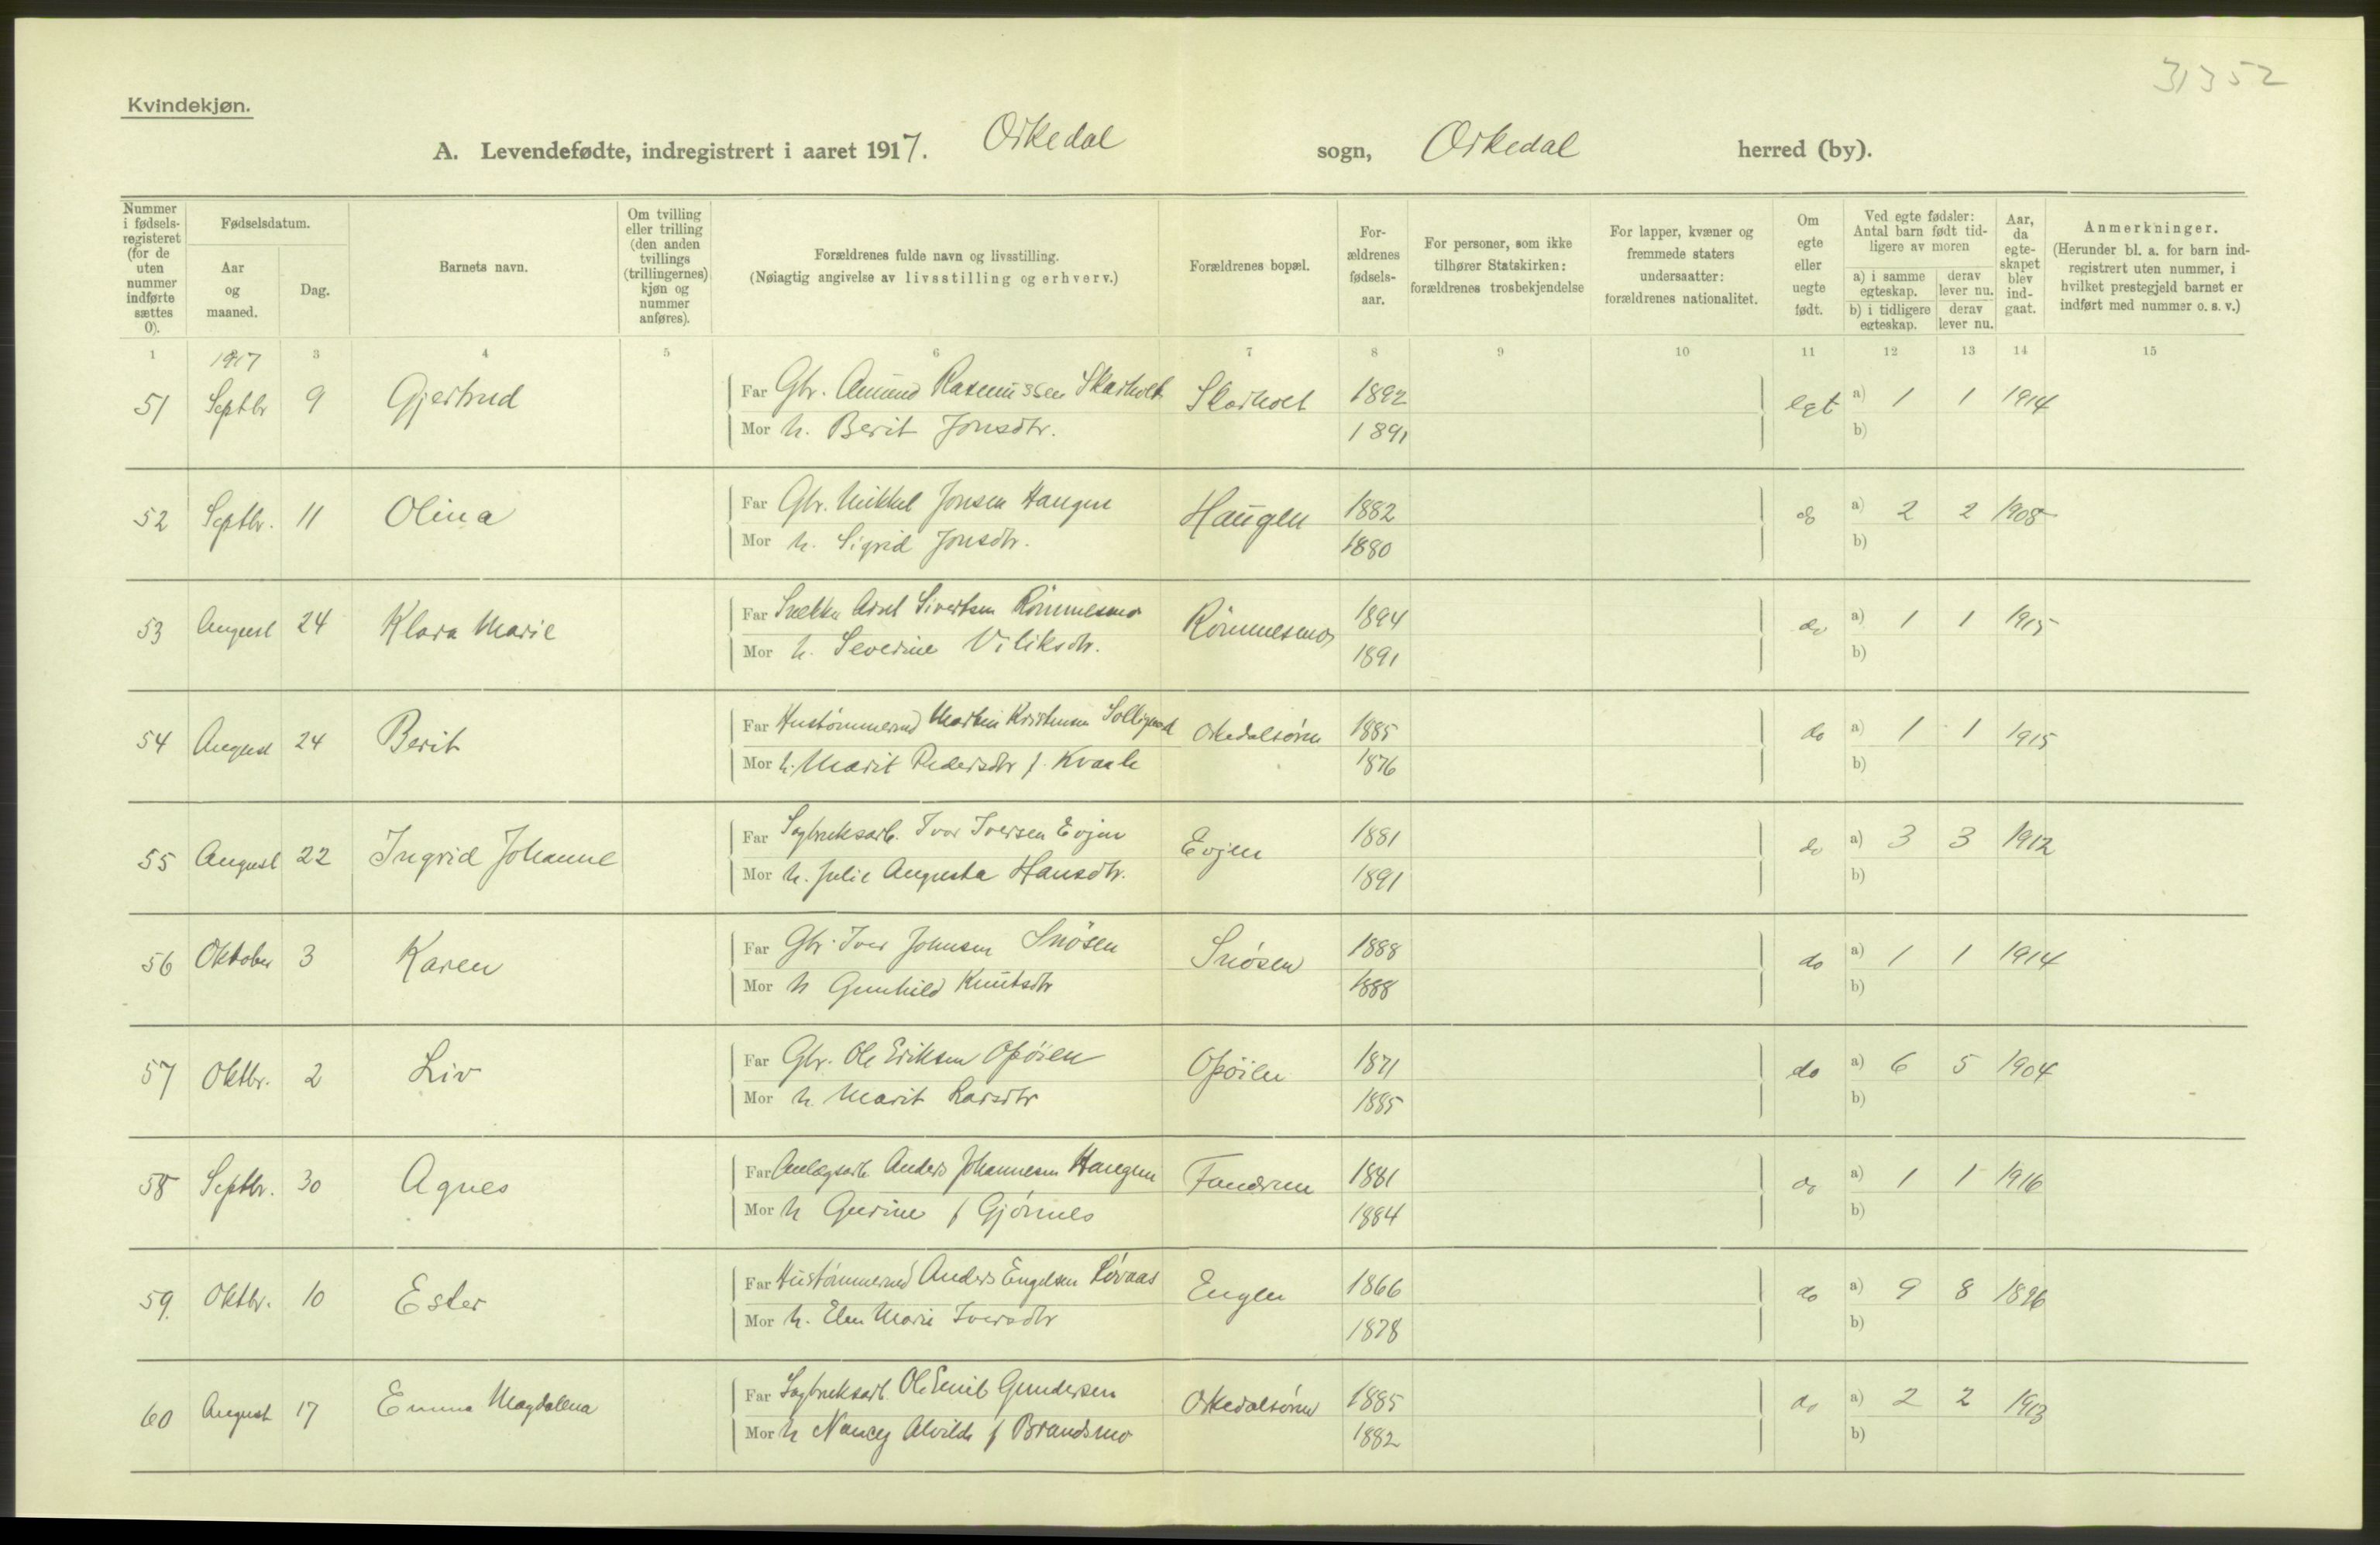 31352
Kvindekjøn.
A. Levendefødte, indregistrert i aaret 1917. Orkedal sogn, Orkedal herred (by).
Nummer i fødsels-registeret (for de uten nummer indførte sættes 0).
Fødselsdatum.
Aar og maaned.
Dag.
Barnets navn.
Om tvilling eller trilling (den anden tvillings (trillingernes) kjøn og nummer anføres).
Forældrenes fulde navn og livsstilling.
(Nøiagtig angivelse av livsstilling og erhverv.)
Forældrenes bopæl.
For-ældrenes fødsels-aar.
For personer, som ikke tilhører Statskirken: forældrenes trosbekjendelse
For lapper, kvæner og fremmede staters undersaatter: forældrenes nationalitet.
Om egte eller uegte født.
Ved egte fødsler: Antal barn født tid-ligere av moren
a) i samme egteskap. derav lever nu.
b) i tidligere egteskap. derav lever nu.
Aar, da egte-skapet blev ind-gaat.
Anmerkninger.
(Herunder bl. a. for barn ind-registrert uten nummer, i hvilket prestegjeld barnet er indført med nummer o. s. v.)
1 3 4 5 6 7 8 9 10 11 12 13 14 15
1917
51 Septbr 9 Gjertrud Far Gbr. Amund Rasmussen Skarholt Skarholt 1892 egt a) 1 1 1914
Mor h. Berit Jonsdtr. 1891 b)
52 Septbr. 11 Olina Far Gbr. Mikkel Jonsen Haugen Haugen 1882 do a) 2 2 1908
Mor h. Sigrid Jonsdtr. 1880 b)
53 August 24 Klara Marie Far Snekker Sivertsen Rømmesmo Rømmesmo 1894 do a) 1 1 1915
Mor h. Severine 1891 b)
54 August 24 Berit Far Hustømmermd Martin Kristensen Orkedalsøren 1885 do a) 1 1 1915
Mor h. Marit Pedersdtr f. Kvaale 1876 b)
55 August 22 Ingrid Johanne Far Sagbruksarb. Ivar Iversen Evjen Evjen 1881 do a) 3 3 1912
Mor h. Julie Augusta Hansdtr. 1891 b)
56 Oktober 3 Karen Far Gbr. Iver Johnsen Snøsen Snøsen 1888 do a) 1 1 1914
Mor h Gunhild Knutsdtr 1888 b)
57 Oktbr. 2 Liv Far Gbr. Ole Eriksen Opøien Opøien 1871 do a) 6 5 1904
Mor h Marit Larsdtr 1885 b)
58 Septbr. 30 Agnes Far Anlægsarb. Anders Johannesen Haugen Fandrem 1881 do a) 1 1 1916
Mor h Gurine f Gjønnes 1884 b)
59. Oktbr. 10 Ester Far Hustømmermd Anders Engelsen Løvaas Englen 1866 do a) 9 8 1896
Mor h. Elen Marie Iversdtr 1878 b)
60 August 17 Emma Magdalena Far Sagbruksarb. Ole Emil Gundersen Orkedalsøren 1885 do a) 2 2 1913
Mor h Nancy Alvilde f Brandsmo 1882 b)